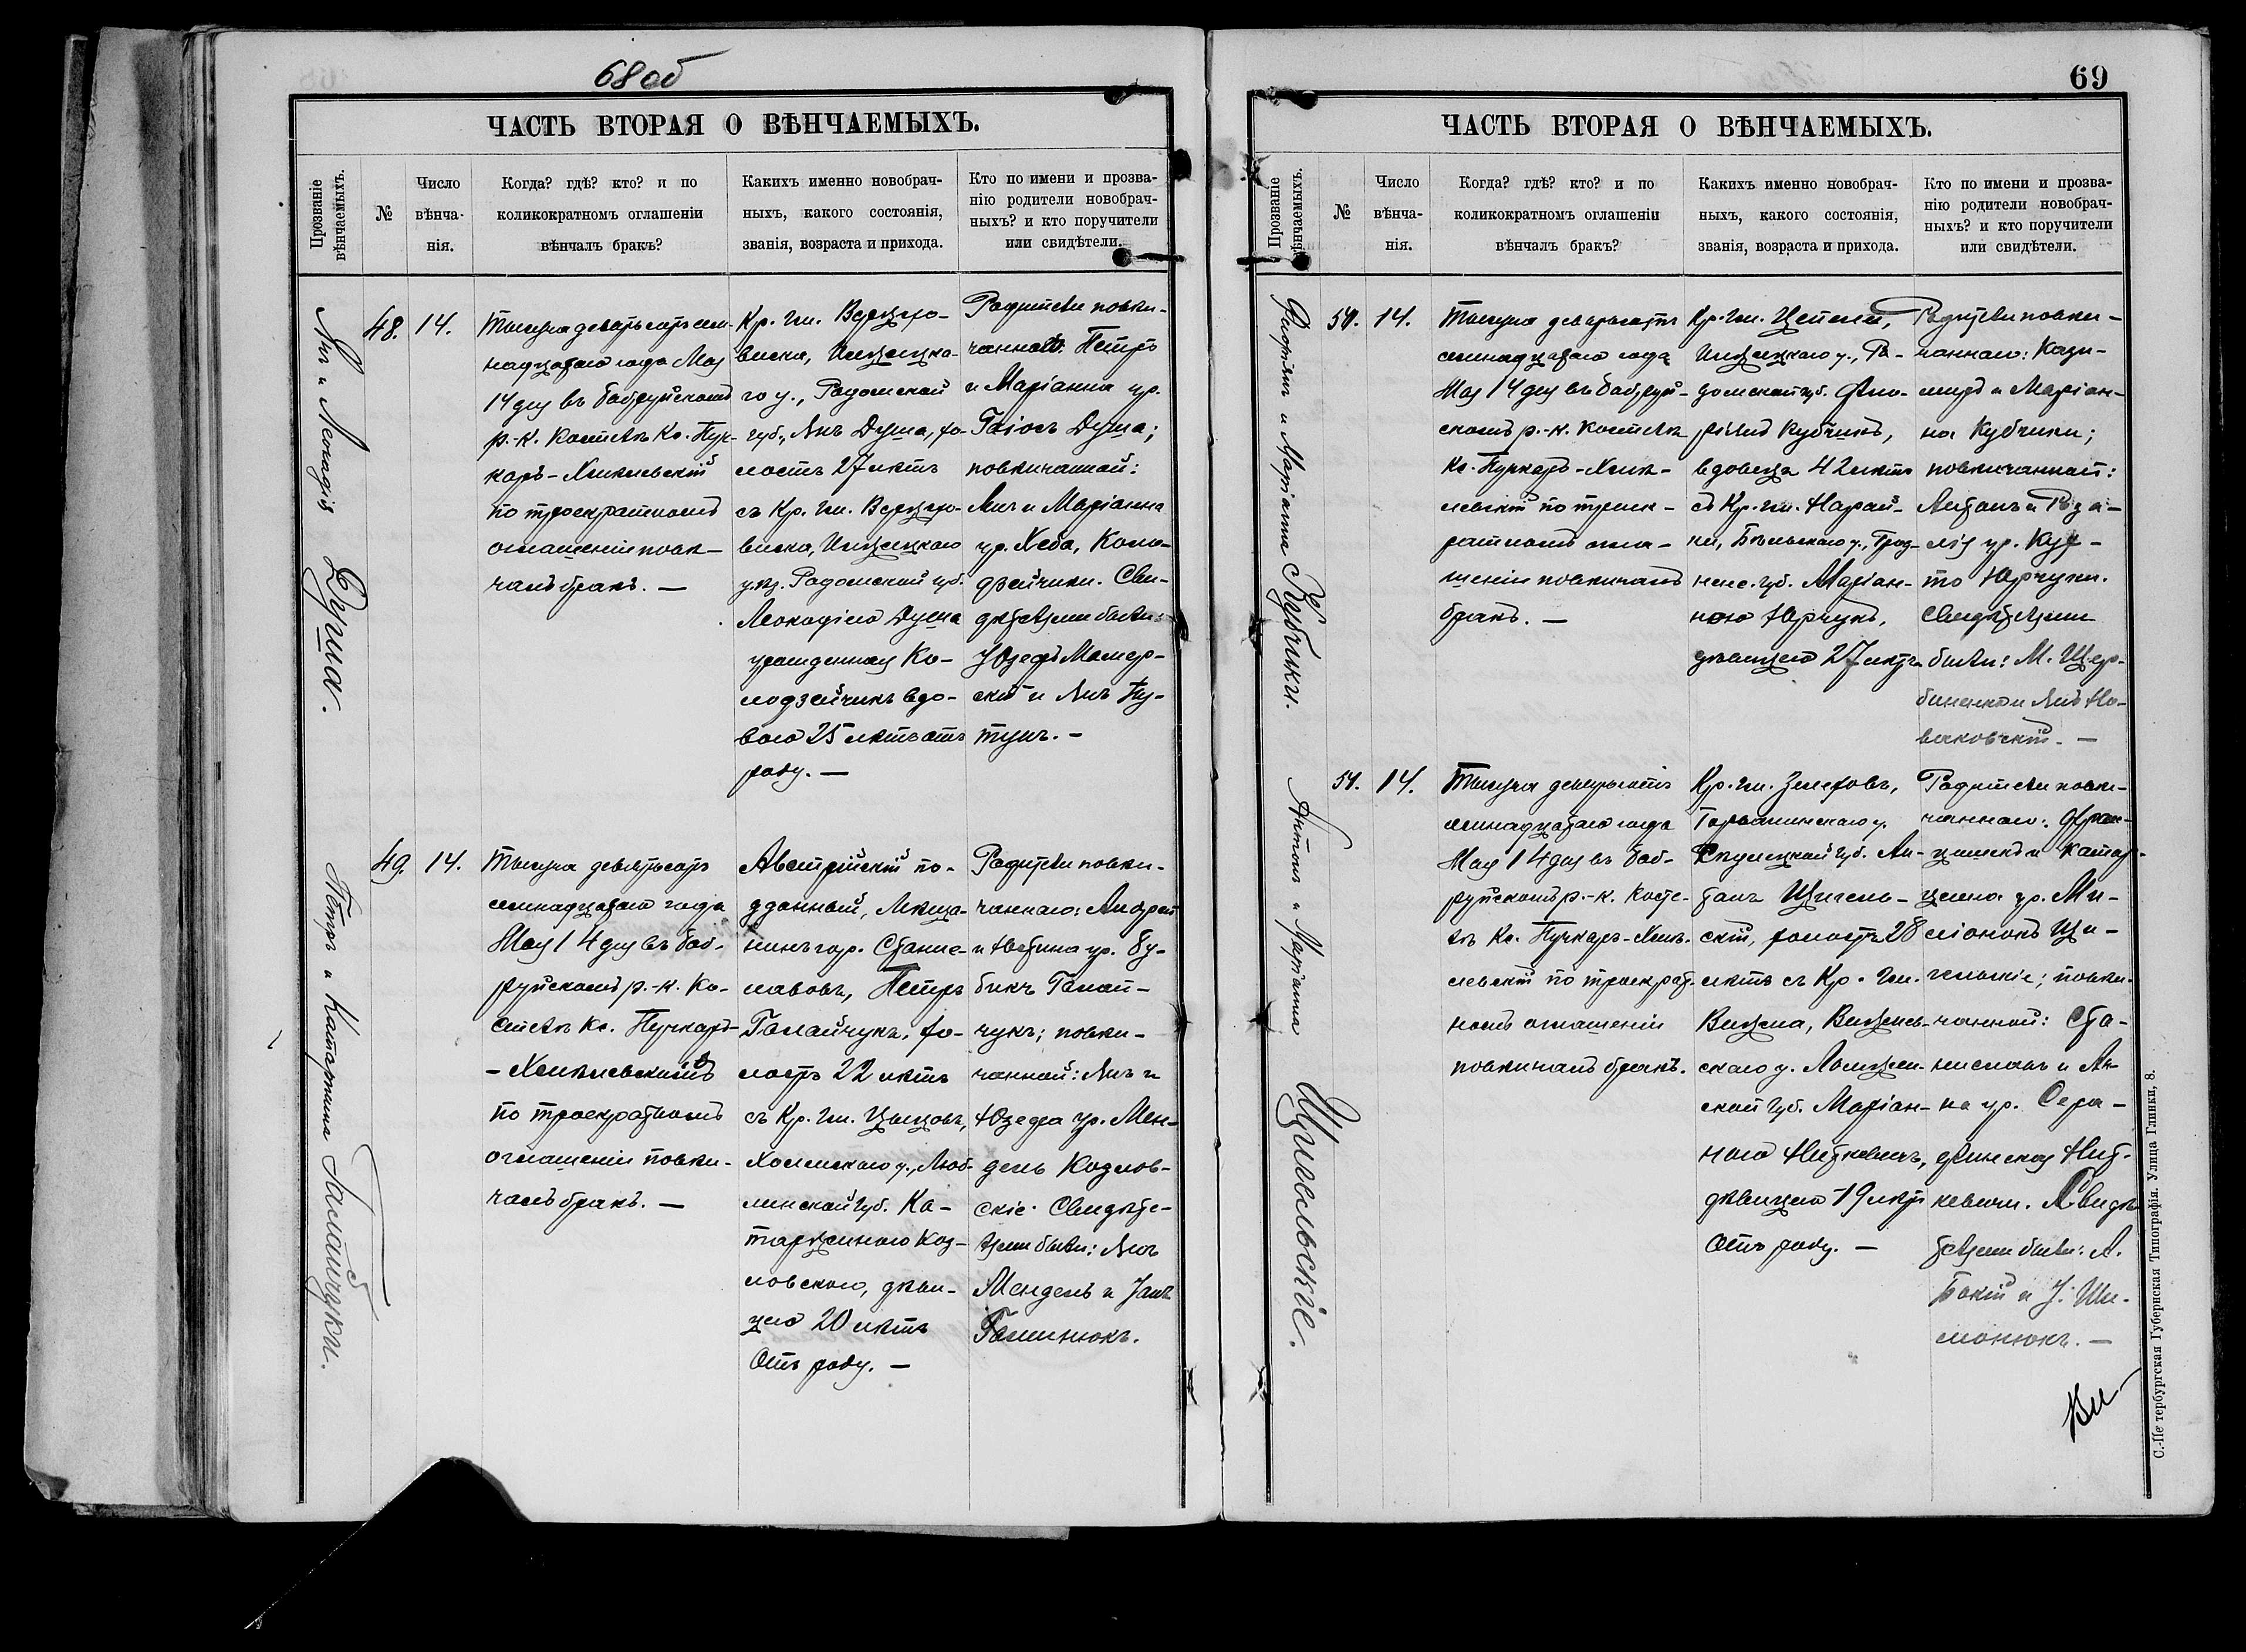 68 об
ЧАСТЬ ВТОРАЯ О ВѢНЧАЕМЫХЪ.
Прозваніе
вѣнчаемыхъ.
№
Число
вѣнча-
нія.
Когда? гдѣ? кто? и по
коликократномъ оглашеніи
вѣнчалъ бракъ?
Какихъ именно новобрач-
ныхъ, какого состоянія,
званія, возраста и прихода.
Кто по имени и прозва-
нію родители новобрач-
ныхъ? и кто поручители
или свидѣтели.
Янъ и Леокадія Душа.
48.
14.
Тысяча девятьсотъ сем-
надцатаго года Мая
14 дня въ Бобруйскомъ
р.-к. Костелѣ Кс. Пуч-
каръ-Хмѣлевскій
по троекратномъ
оглашеніи повѣн-
чалъ бракъ. —
Кр. гм.
го у., Радомской
губ., Янъ Душа, хо-
лостъ 27 лѣтъ
съ Кр. гм.
уѣз. Радомской губ.
Леокадіею Душа
урожденная Ко-
лодзейчикъ вдо-
вою 25 лѣтъ отъ
роду. —
Родители повѣн-
чаннаго: Петръ
и Маріанна ур.
Душа;
повѣнчанной:
Янъ и Маріанна
ур. Хеба, Коло-
дзейчики. Сви-
дѣтелями были:
Юзефъ
и Янъ Пу-
тунъ. —
Петръ и Катаржина Галайчуки.
49.
14.
Тысяча девятьсотъ
семнадцатаго года
Мая 14 дня въ Боб-
руйскомъ р.-к. Ко-
стелѣ Кс. Пучкаръ-
-Хмѣлевскій
по троекратномъ
оглашеніи повѣн-
чалъ бракъ. —
Австрійскій по-
дданный, мѣща-
нинъ гор. Станис-
лавовъ, Петръ
Галайчукъ, хо-
лостъ 22 лѣтъ
съ Кр. гм. Цыцовъ,
Холмскаго у., Люб-
линской губ. Ка-
таржиною Коз-
ловскою, дѣви-
цею 20 лѣтъ
отъ роду. —
Родители повѣн-
чаннаго: Андрей
и Юстина ур. Бу-
бикъ Галай-
чукъ; повѣн-
чанной: Янъ и
Юзефа ур. Мен-
дель Козлов-
скіе. Свидѣте-
лями были: Янъ
Мендель и Janъ
69
ЧАСТЬ ВТОРАЯ О ВѢНЧАЕМЫХЪ.
Прозваніе
вѣнчаемыхъ.
№
Число
вѣнча-
нія.
Когда? гдѣ? кто? и по
коликократномъ оглашеніи
вѣнчалъ бракъ?
Какихъ именно новобрач-
ныхъ, какого состоянія,
званія, возраста и прихода.
Кто по имени и прозва-
нію родители новобрач-
ныхъ? и кто поручители
или свидѣтели.
и Маріанна Кубчики.
14.
Тысяча девятьсотъ
семнадцатаго года
Мая 14 дня въ Бобруй-
скомъ р.-к. Костелѣ
Кс. Пучкаръ-Хмѣ-
левскій по троек-
ратномъ огла-
шеніи повѣнчалъ
бракъ. —
Кр. гм.
у., Ра-
домской губ. Фло-
ріянъ Кубчикъ,
вдовецъ 42 лѣтъ
съ Кр. гм. Нарой-
ки, Бѣльскаго у., Грод-
ненс. губ. Маріан-
ною Юрчукъ,
дѣвицею 27 лѣтъ
Родители повѣн-
чаннаго: Кази-
миръ и Маріан-
на Кубчики;
повѣнчанной:
Антонъ и Роза-
лія ур.
Юрчуки.
Свидѣтелями
были: М. Щер-
биненко и Янъ Но-
ваковскій. —
Антонъ и Маріанна Щигельскіе.
51.
14.
Тысяча девятьсотъ
семнадцатаго года
Мая 14 дня въ Боб-
руйскомъ р.-к. Косте-
лѣ Кс. Пучкаръ-Хмѣ-
левскій по троекрат-
номъ оглашеніи
повѣнчалъ бракъ.
Кр. гм. Желеховъ,
Гарволинскаго у.
губ. Ан-
тонъ Щигель-
скій, холостъ 28
лѣтъ съ Кр. гм.
Визна,
скаго у. Ломжин-
ской губ. Маріан-
ною Ниткевичъ,
дѣвицею 19 лѣтъ
отъ роду. —
Родители повѣн-
чаннаго: Фран-
цишекъ и Катар-
жина ур. Ми-
Щи-
гельскіе; повѣн-
чанной: Ста-
ниславъ и Ан-
на ур. Сера-
финская Нит-
кевичи. Свидѣ-
телями были: А.
Бокій и J. Ши-
монюкъ. —
С.-Петербургская Губернская Типографія. Улица Глинки, 8.